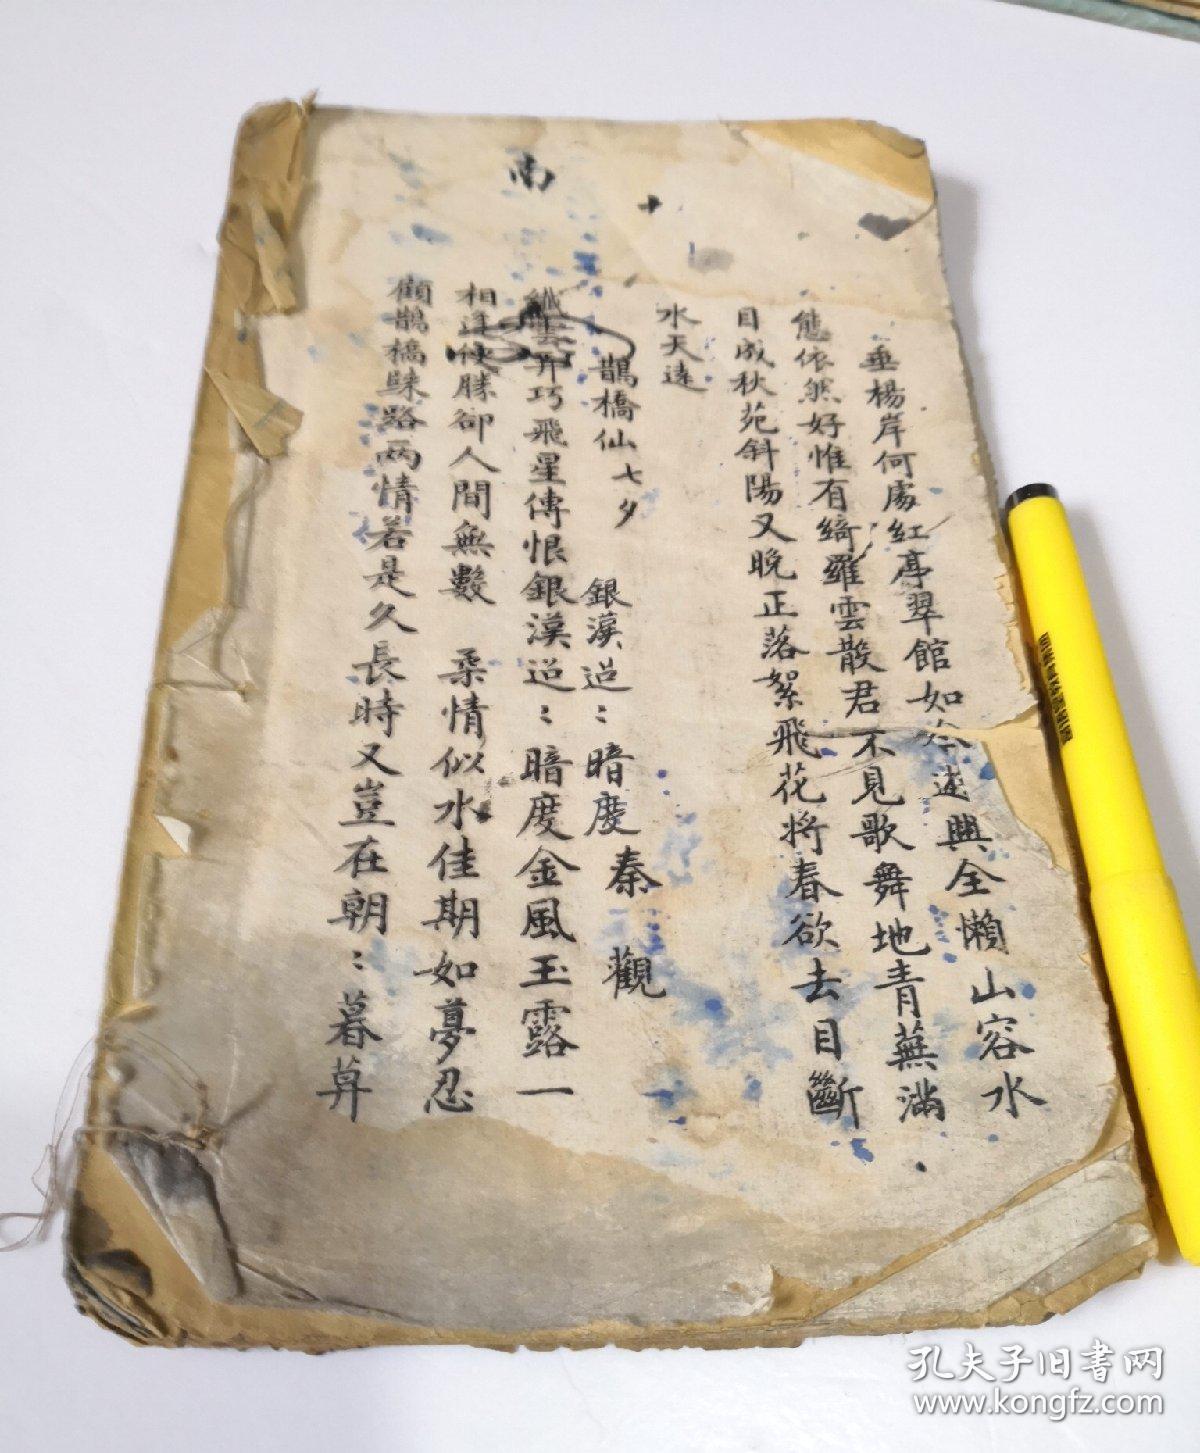 南
十
垂楊岸何處紅亭翠館如今遊興全懶山容水
態依然好惟有綺羅雲散君不見歌舞地青蕪滿
目成秋苑斜陽又晚正落絮飛花將春欲去目斷
水天遠
鵲橋仙 七夕 銀漢迢：暗度 秦觀
纖雲弄巧飛星傳恨銀漢迢：暗度金風玉露一
相逢便勝卻人間無數 柔情似水佳期如夢忍
顧鵲橋歸路兩情若是久長時又豈在朝：暮暮
孔夫子旧書网
www.kongfz.com